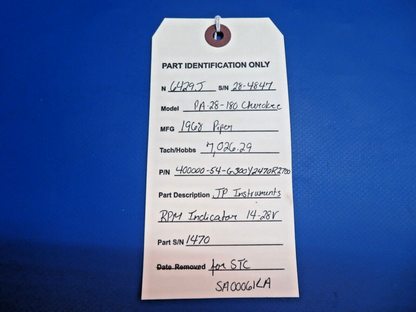 PART IDENTIFICATION ONLY
N 6429J S/N 28-4847
Model PA-28-180 Cherokee
MFG 1968 Piper
Tach/Hobbs 7,026.29
P/N 400000-54-G300Y2470R2700
Part Description JP Instruments
RPM Indicator 14-28V
Part S/N 1470
Date Removed for STC
SA00061LA